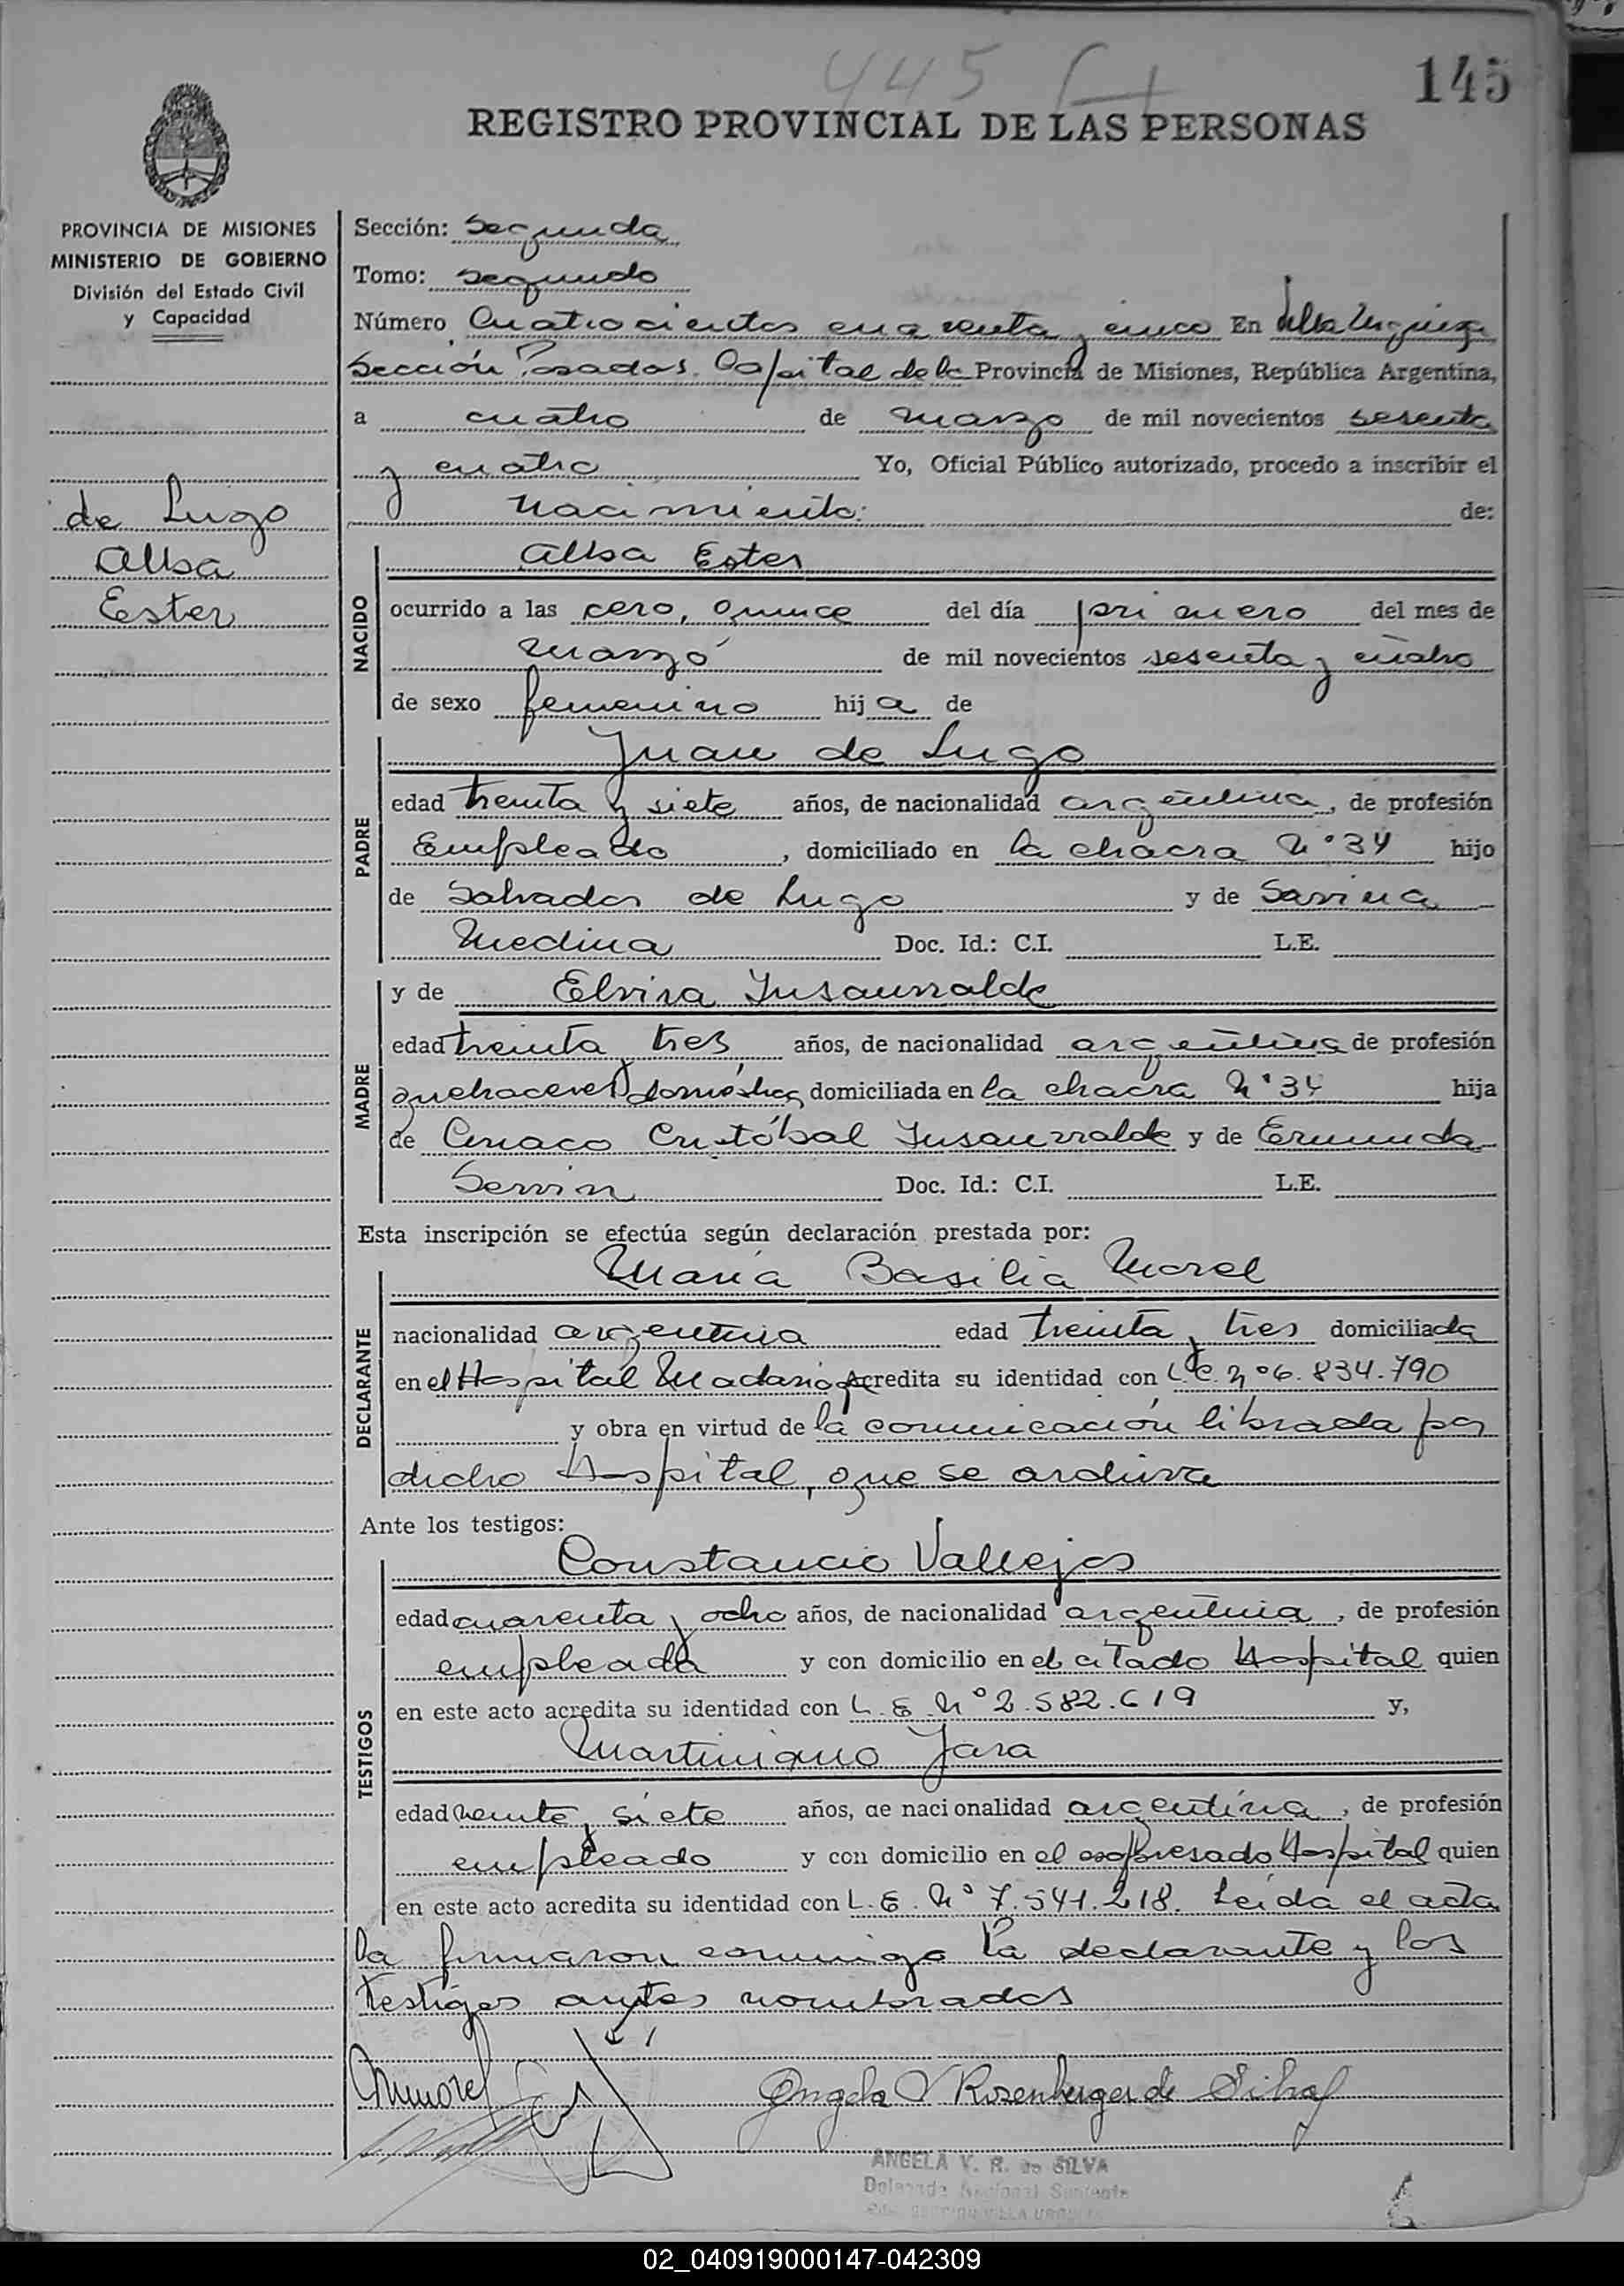 445
145
REGISTRO PROVINCIAL DE LAS PERSONAS
PROVINCIA DE MISIONES
MINISTERIO DE GOBIERNO
División del Estado Civil
y Capacidad
de Lugo
Alba
Ester
Sección: Segunda
Tomo: segundo
Número Cuatrocientos cuarenta y cinco En Villa Urquiza
Sección Posadas Capital de la Provincia de Misiones, República Argentina,
a cuatro de marzo de mil novecientos sesenta
y cuatro Yo, Oficial Público autorizado, procedo a inscribir el
nacimiento: de:
NACIDO
Alba Ester
ocurrido a las cero, quince del día primero del mes de
marzo de mil novecientos sesenta y cuatro
de sexo femenino hija de
PADRE
Juan de Lugo
edad treinta y siete años, de nacionalidad argentina, de profesión
Empleado, domiciliado en la chacra Nº 34 hijo
de Salvador de Lugo y de
Medina Doc. Id.: C.I. L.E.
MADRE
y de Elvira Insaurralde
edad treinta y tres años, de nacionalidad argentina de profesión
quehaceres domésticos domiciliada en la chacra Nº 34 hija
de Cristóbal Insaurralde y de
Servin Doc. Id.: C.I. L.E.
Esta inscripción se efectúa según declaración prestada por:
DECLARANTE
María Basilia Morel
nacionalidad argentina edad treinta y tres domiciliada
en el Hospital Madariaga acredita su identidad con L.C. nº 6.834.790
y obra en virtud de la comunicación librada por
dicho Hospital, que se archiva
Ante los testigos:
TESTIGOS
Constancio Vallejos
edad cuarenta y ocho años, de nacionalidad argentina, de profesión
empleado y con domicilio en el citado Hospital quien
en este acto acredita su identidad con L.E. Nº 2.582.619 y,
Martiniano Jara
edad veinte y siete años, de nacionalidad argentina, de profesión
empleado y con domicilio en el expresado Hospital quien
en este acto acredita su identidad con L.E. Nº 7.541.218. Leída el acta
la firmaron conmigo la declarante y los
testigos antes nombrados
Angela V Rosenberger de Silva
ANGELA V. R. de SILVA
02_040919000147-042309